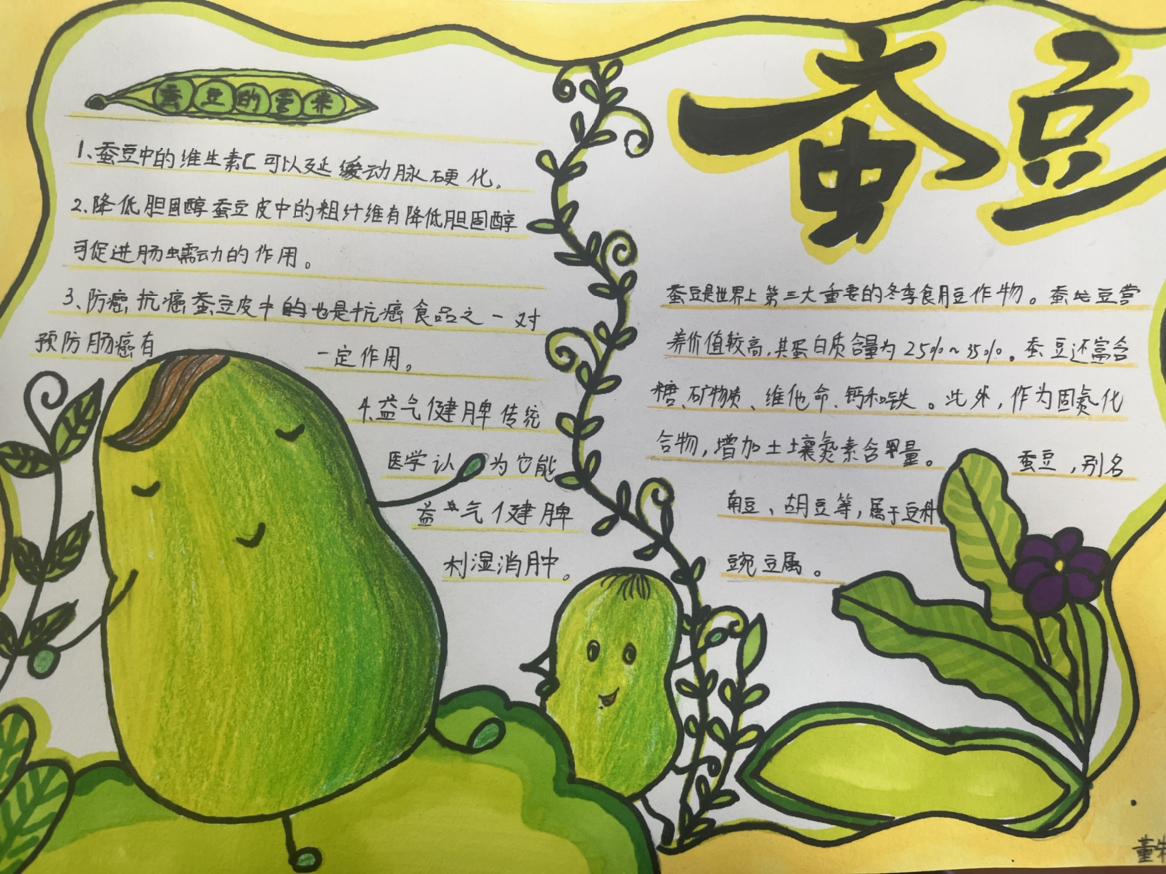 蚕豆的营养
1、蚕豆中的维生素C可以延缓动脉硬化。
2、降低胆固醇蚕豆皮中的粗纤维有降低胆固醇
可促进肠蠕动的作用。
3、防癌抗癌蚕豆皮中的也是抗癌食品之一对
预防肠癌有一定作用。
4.益气健脾传统
医学认为它能
益气健脾
利湿消肿。
蚕豆
蚕豆是世界上第三大重要的冬季食用豆作物。蚕豆营
养价值较高,其蛋白质含量为25%~35%。蚕豆还富含
糖、矿物质、维他命、钙和铁。此外,作为固氮化
合物,增加土壤氮素含量。蚕豆,别名
南豆、胡豆等,属于豆科
豌豆属。
董